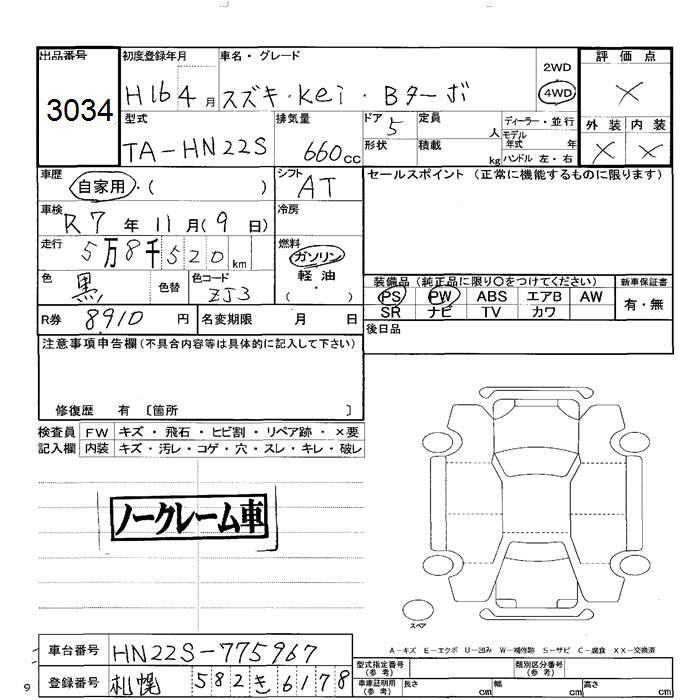 出品番号 初度登録年月 車名・グレード 評価点
3034 H16 4月 スズキ・Kei・Bターボ 2WD 4WD ×
型式 排気量 ドア 定員 ディーラー・並行 外装 内装
TA-HN22S 660cc 5 人 モデル年式 年 × ×
形状 積載 kg ハンドル 左・右
車歴 シフト セールスポイント (正常に機能するものに限ります)
自家用・( ) AT
車検 冷房
R7年 11月(9日)
走行 燃料
5万8千520km ガソリン
色 色替 色コード 軽油
黒 ZJ3 ( ・ )
装備品 (純正品に限り〇をつけてください) 新車保証書
PS PW ABS エアB AW 有・無
SR ナビ TV カワ
R券 8910円 名変期限 月 日 後日品
注意事項申告欄(不具合内容等は具体的に記入して下さい)
修復歴 有 〔箇所 〕
検査員 FW キズ・飛石・ヒビ割・リペア跡・×要
記入欄 内装 キズ・汚レ・コゲ・穴・スレ・キレ・破レ
ノークレーム車
スペア
A-キズ E-エクボ U-凹み W-補修跡 S-サビ C-腐食 XX-交換済
車台番号 HN22S-775967 型式指定番号(参考) 類別区分番号(参考)
登録番号 札幌 582 き 6178 車庫証明用(参考) 長さ cm 幅 cm 高さ cm
9